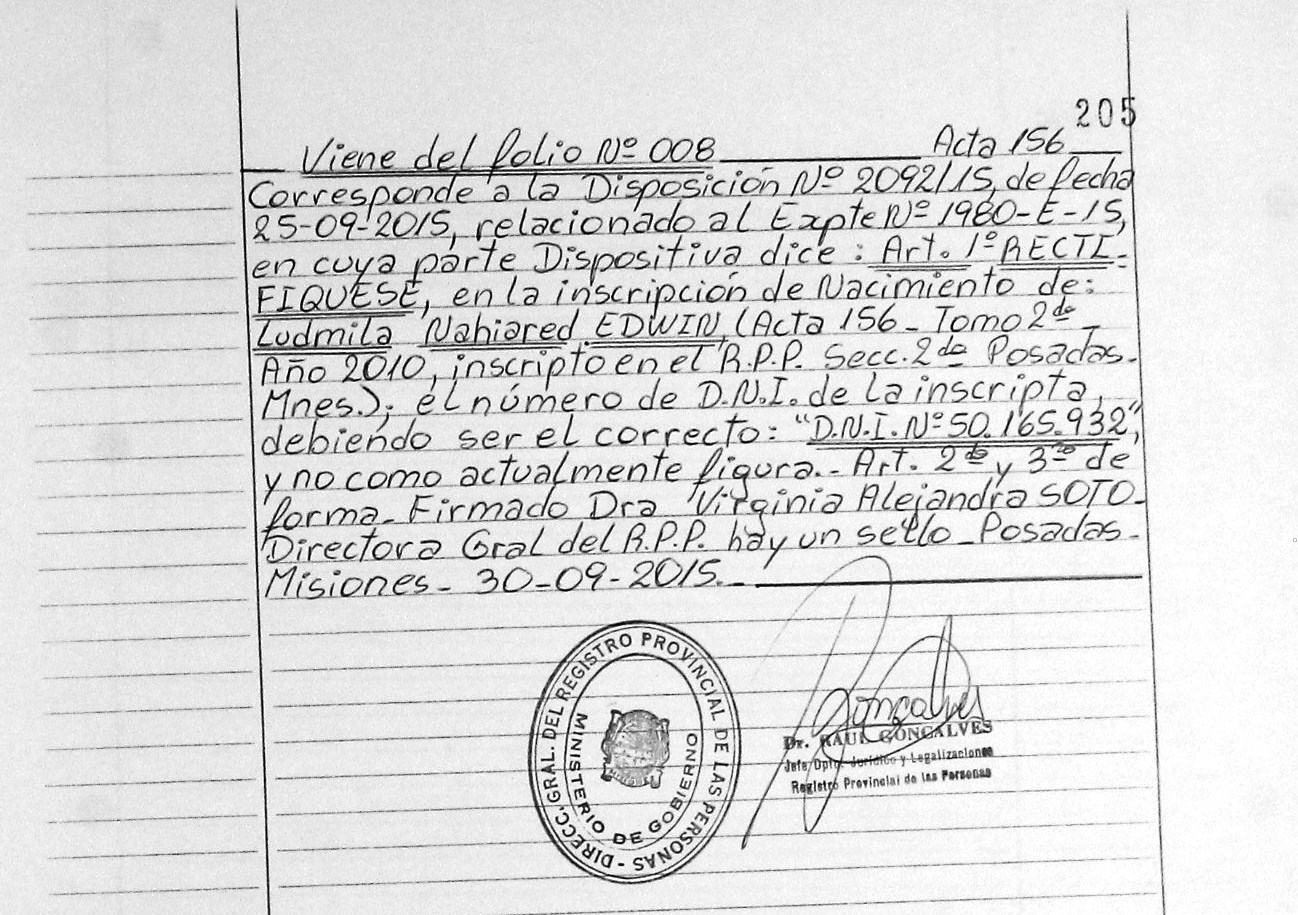 205
Viene del folio Nº 008 Acta 156
Corresponde a la Disposición Nº 2092/15, de fecha
25-09-2015, relacionado al Expte Nº 1980-E-15,
en cuya parte Dispositiva dice: Art. 1º RECTI-
FIQUESE, en la inscripción de Nacimiento de:
Ludmila Nahiared EDWIN, (Acta 156 - Tomo 2do -
Año 2010, inscripto en el R.P.P. Secc. 2da Posadas-
Mnes.); el número de D.N.I. de la inscripta,
debiendo ser el correcto: "D.N.I. Nº 50.165.932",
y no como actualmente figura.- Art. 2do y 3ro de
forma- Firmado Dra Virginia Alejandra SOTO-
Directora Gral del R.P.P. hay un sello- Posadas-
Misiones- 30-09-2015.-
DIRECC. GRAL. DEL REGISTRO PROVINCIAL DE LAS PERSONAS -
MINISTERIO DE GOBIERNO
Goncalves
Dr. RAUL GONCALVES
Jefe Dpto. Jurídico y Legalizaciones
Registro Provincial de las Personas